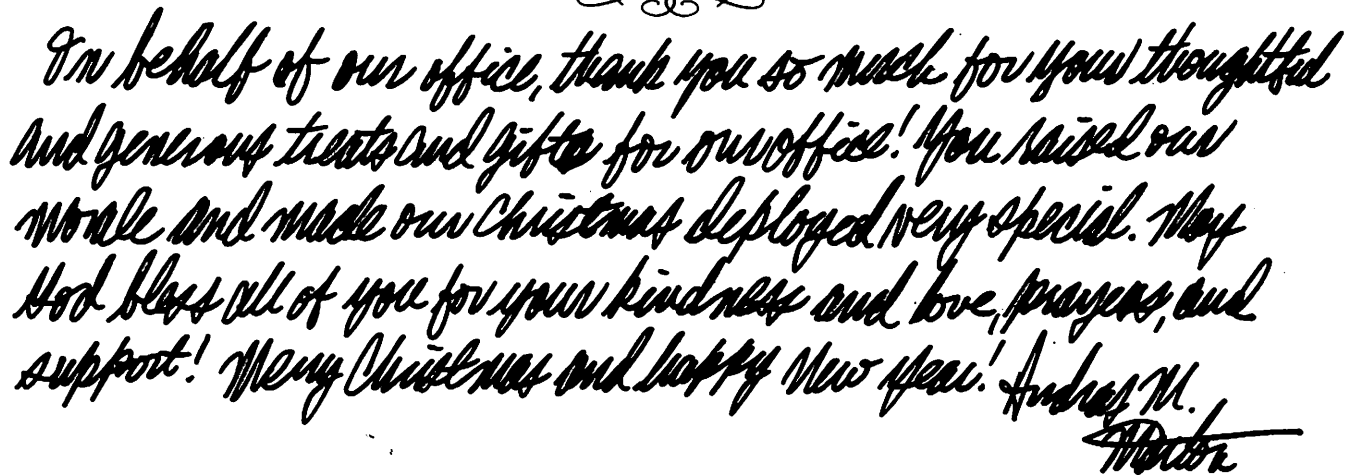 On behalf of our office, thank you so much for your thoughtful
and generous treats and gifts for our office! You raised our
morale and made our Christmas deployed very special. May
God bless all of you for your kindness and love, prayers, and
support! Merry Christmas and happy New Year! Andras M.
Marton